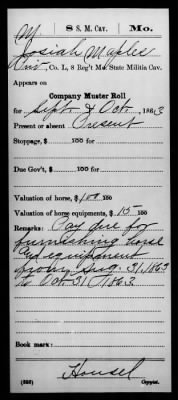 M | 8 S. M. Cav. | Mo.
Josiah Maples
Pvt, Co. L, 8 Reg't Mo. State Militia Cav.
Appears on
Company Muster Roll
for Sept & Oct, 1863
Present or absent Present
Stoppage, $ 100 for
Due Gov't, $ 100 for
Valuation of horse, $ 100 100
Valuation of horse equipments, $ 15 100
Remarks: Pay due for
furnishing horse
and equipment
from Aug. 31, 1863
to Oct 31, 1863.
Book mark:
Housel
(858) Copyist.